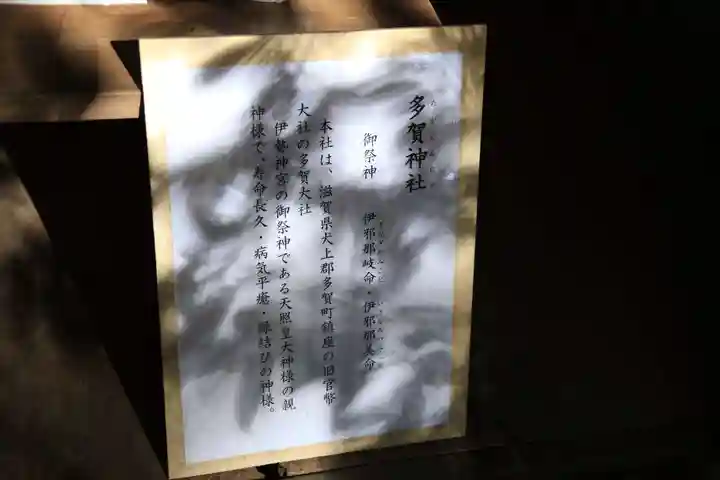 多賀神社
御祭神 伊邪那岐命・伊邪那美命
本社は、滋賀県犬上郡多賀町鎮座の旧官幣
大社の多賀大社
伊勢神宮の御祭神である天照皇大神様の親
神様で、寿命長久・病気平癒・縁結びの神様。